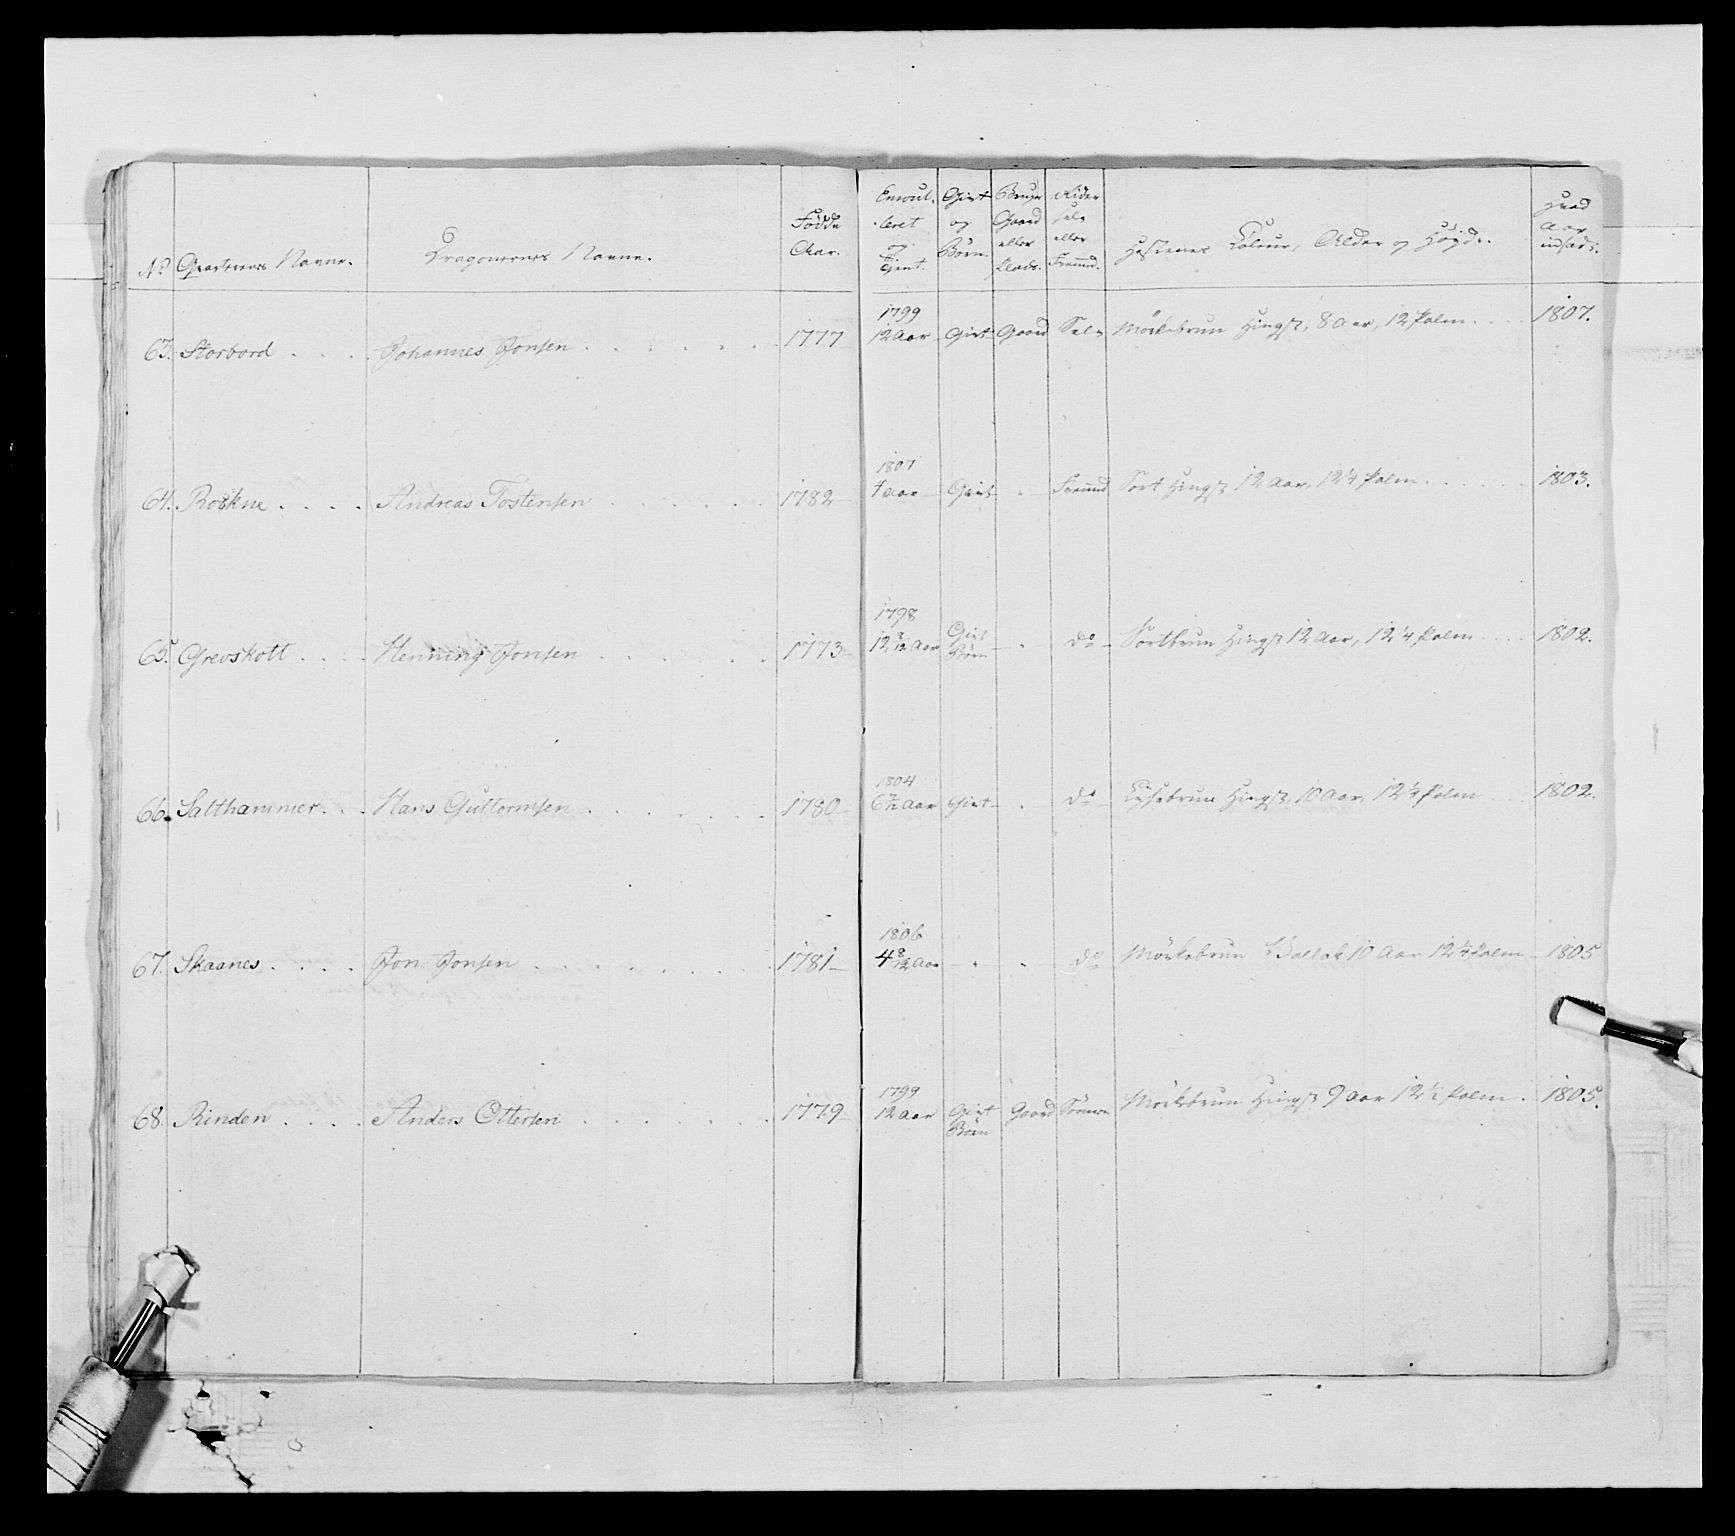 No Qvarterers Navne. Dragonernes Navne. Fødde Aar. Enroulleret og Tjent. Givt og Børn. Bruger Gaard eller Plads. Rider selv eller Fremd. Hestenes Coleur, Alder og Høyde. Hvad Aar indsadt.
63. Storbord . . . . Johannes Jonsen . . . . . . . 1777 1799 12 Aar Givt Gaard Selv Mörkebrun Hingst, 8 Aar, 12 Palm . . . . 1807.
64. Roskne . . . . Andreas Tostensen . . . . . . 1782 1807 4 Aar Givt - Fremd Sort Hingst 12 Aar, 12 1/4 Palm . . . . . . 1803.
65. Grevskott . . . . Henning Jonsen . . . . . . . 1773 1798 12 8/12 Aar Givt Børn - do Sortbrun Hingst 12 Aar, 12 1/4 Palm . . . . 1802.
66. Salthammer . . . Hans Guttormsen . . . . . . . 1780 1804 6 7/12 Aar Givt - do Lysebrun Hingst, 10 Aar, 12 1/4 Palm . . 1802.
67. Skaanes . . . . Jon Jonsen . . . . . . . . 1781 1806 4 8/12 Aar - - do Mörkebrun Vallak 10 Aar 12 1/4 Palm 1805
68. Rinden . . . . Anders Ottersen . . . . . . . 1779 1799 12 Aar Givt Børn Gaard Mörkebrun Hingst 9 Aar 12 1/2 Palm . 1805.